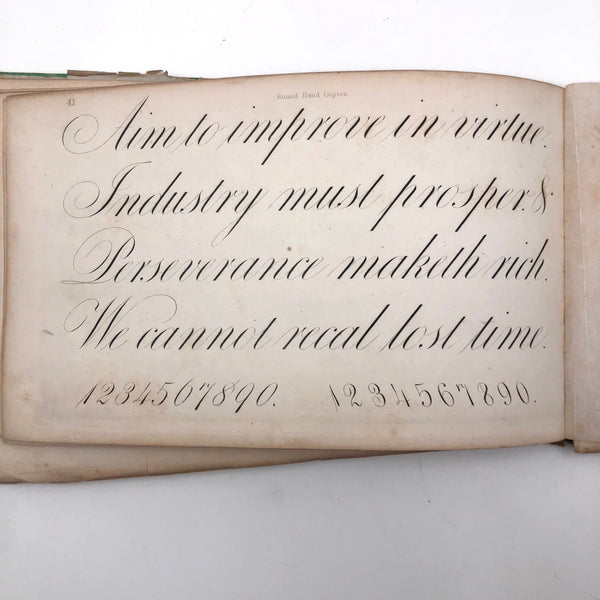 41 Round Hand Copies
Aim to improve in virtue.
Industry must prosper. &
Perseverance maketh rich.
We cannot recal lost time.
1234567890. 1234567890.